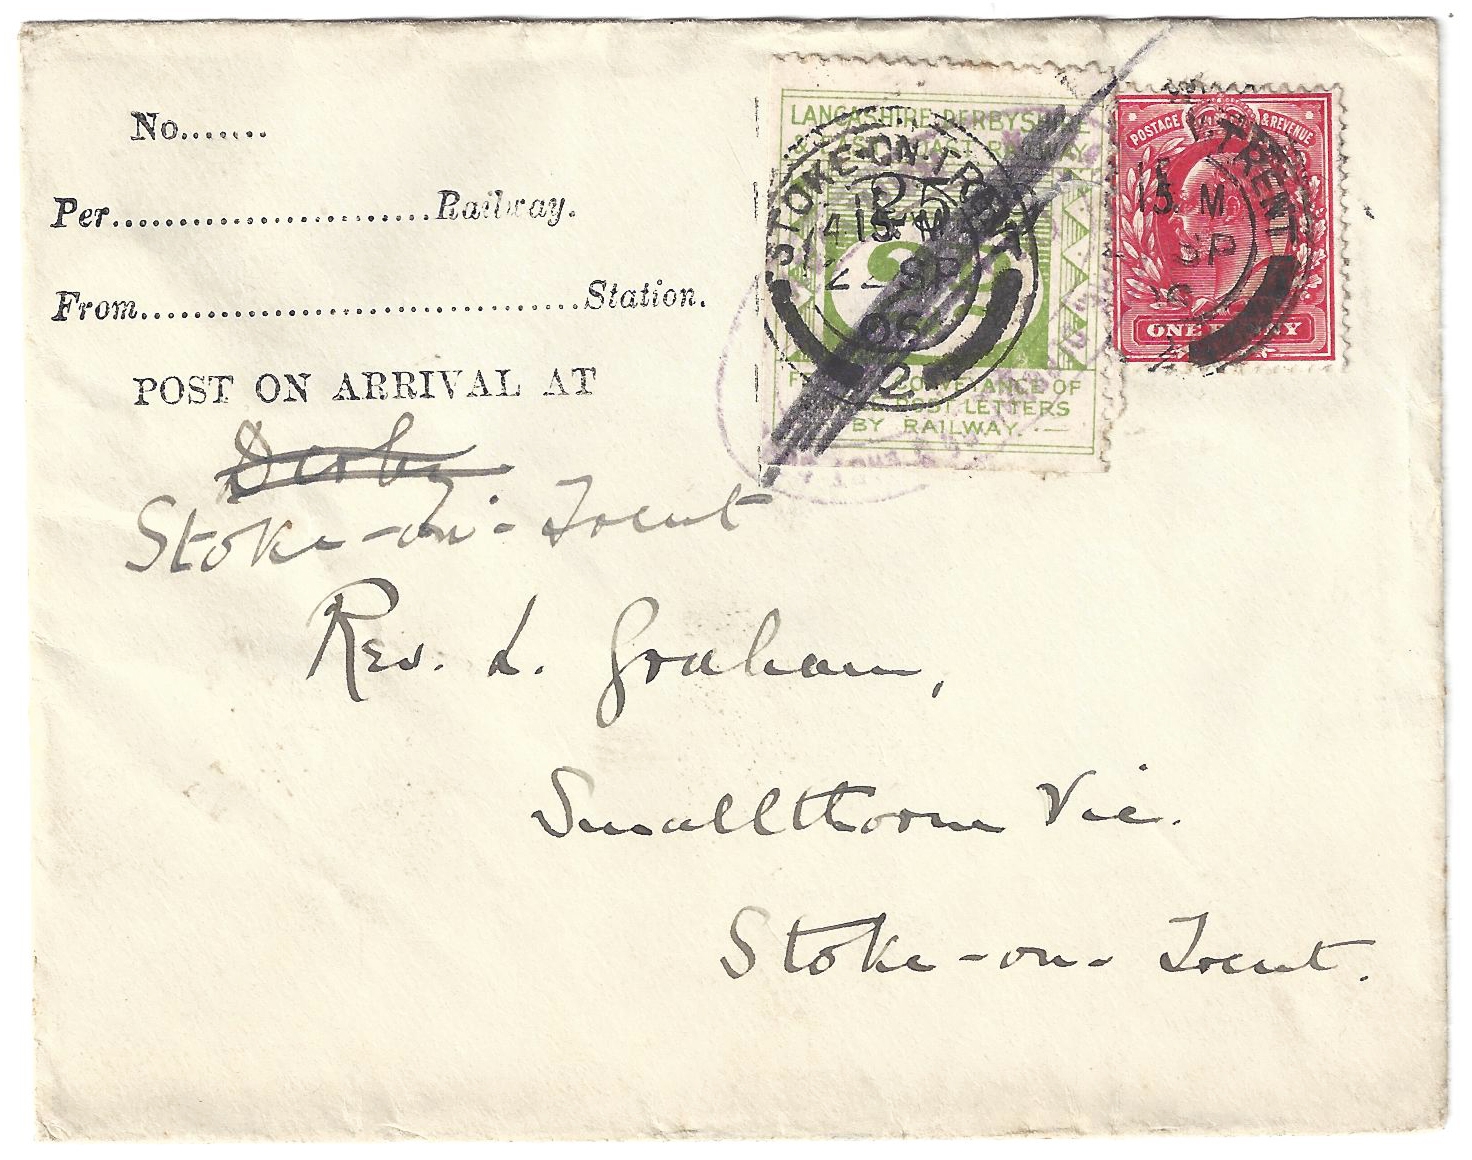 No.......
Per........................Railway.
From.................................Station.
POST ON ARRIVAL AT
Derby
Stoke-on-Trent
Rev. L. Graham,
Smallthorne Vic.
Stoke-on-Trent.
LANCASHIRE, DERBYSHIRE
& EAST COAST RAILWAY
2
CONVEYANCE OF
POST LETTERS
BY RAILWAY
STOKE-ON-TRENT
4.15 PM
22 SP
06
2
POSTAGE & REVENUE
ONE PENNY
TRENT
15 M
SP